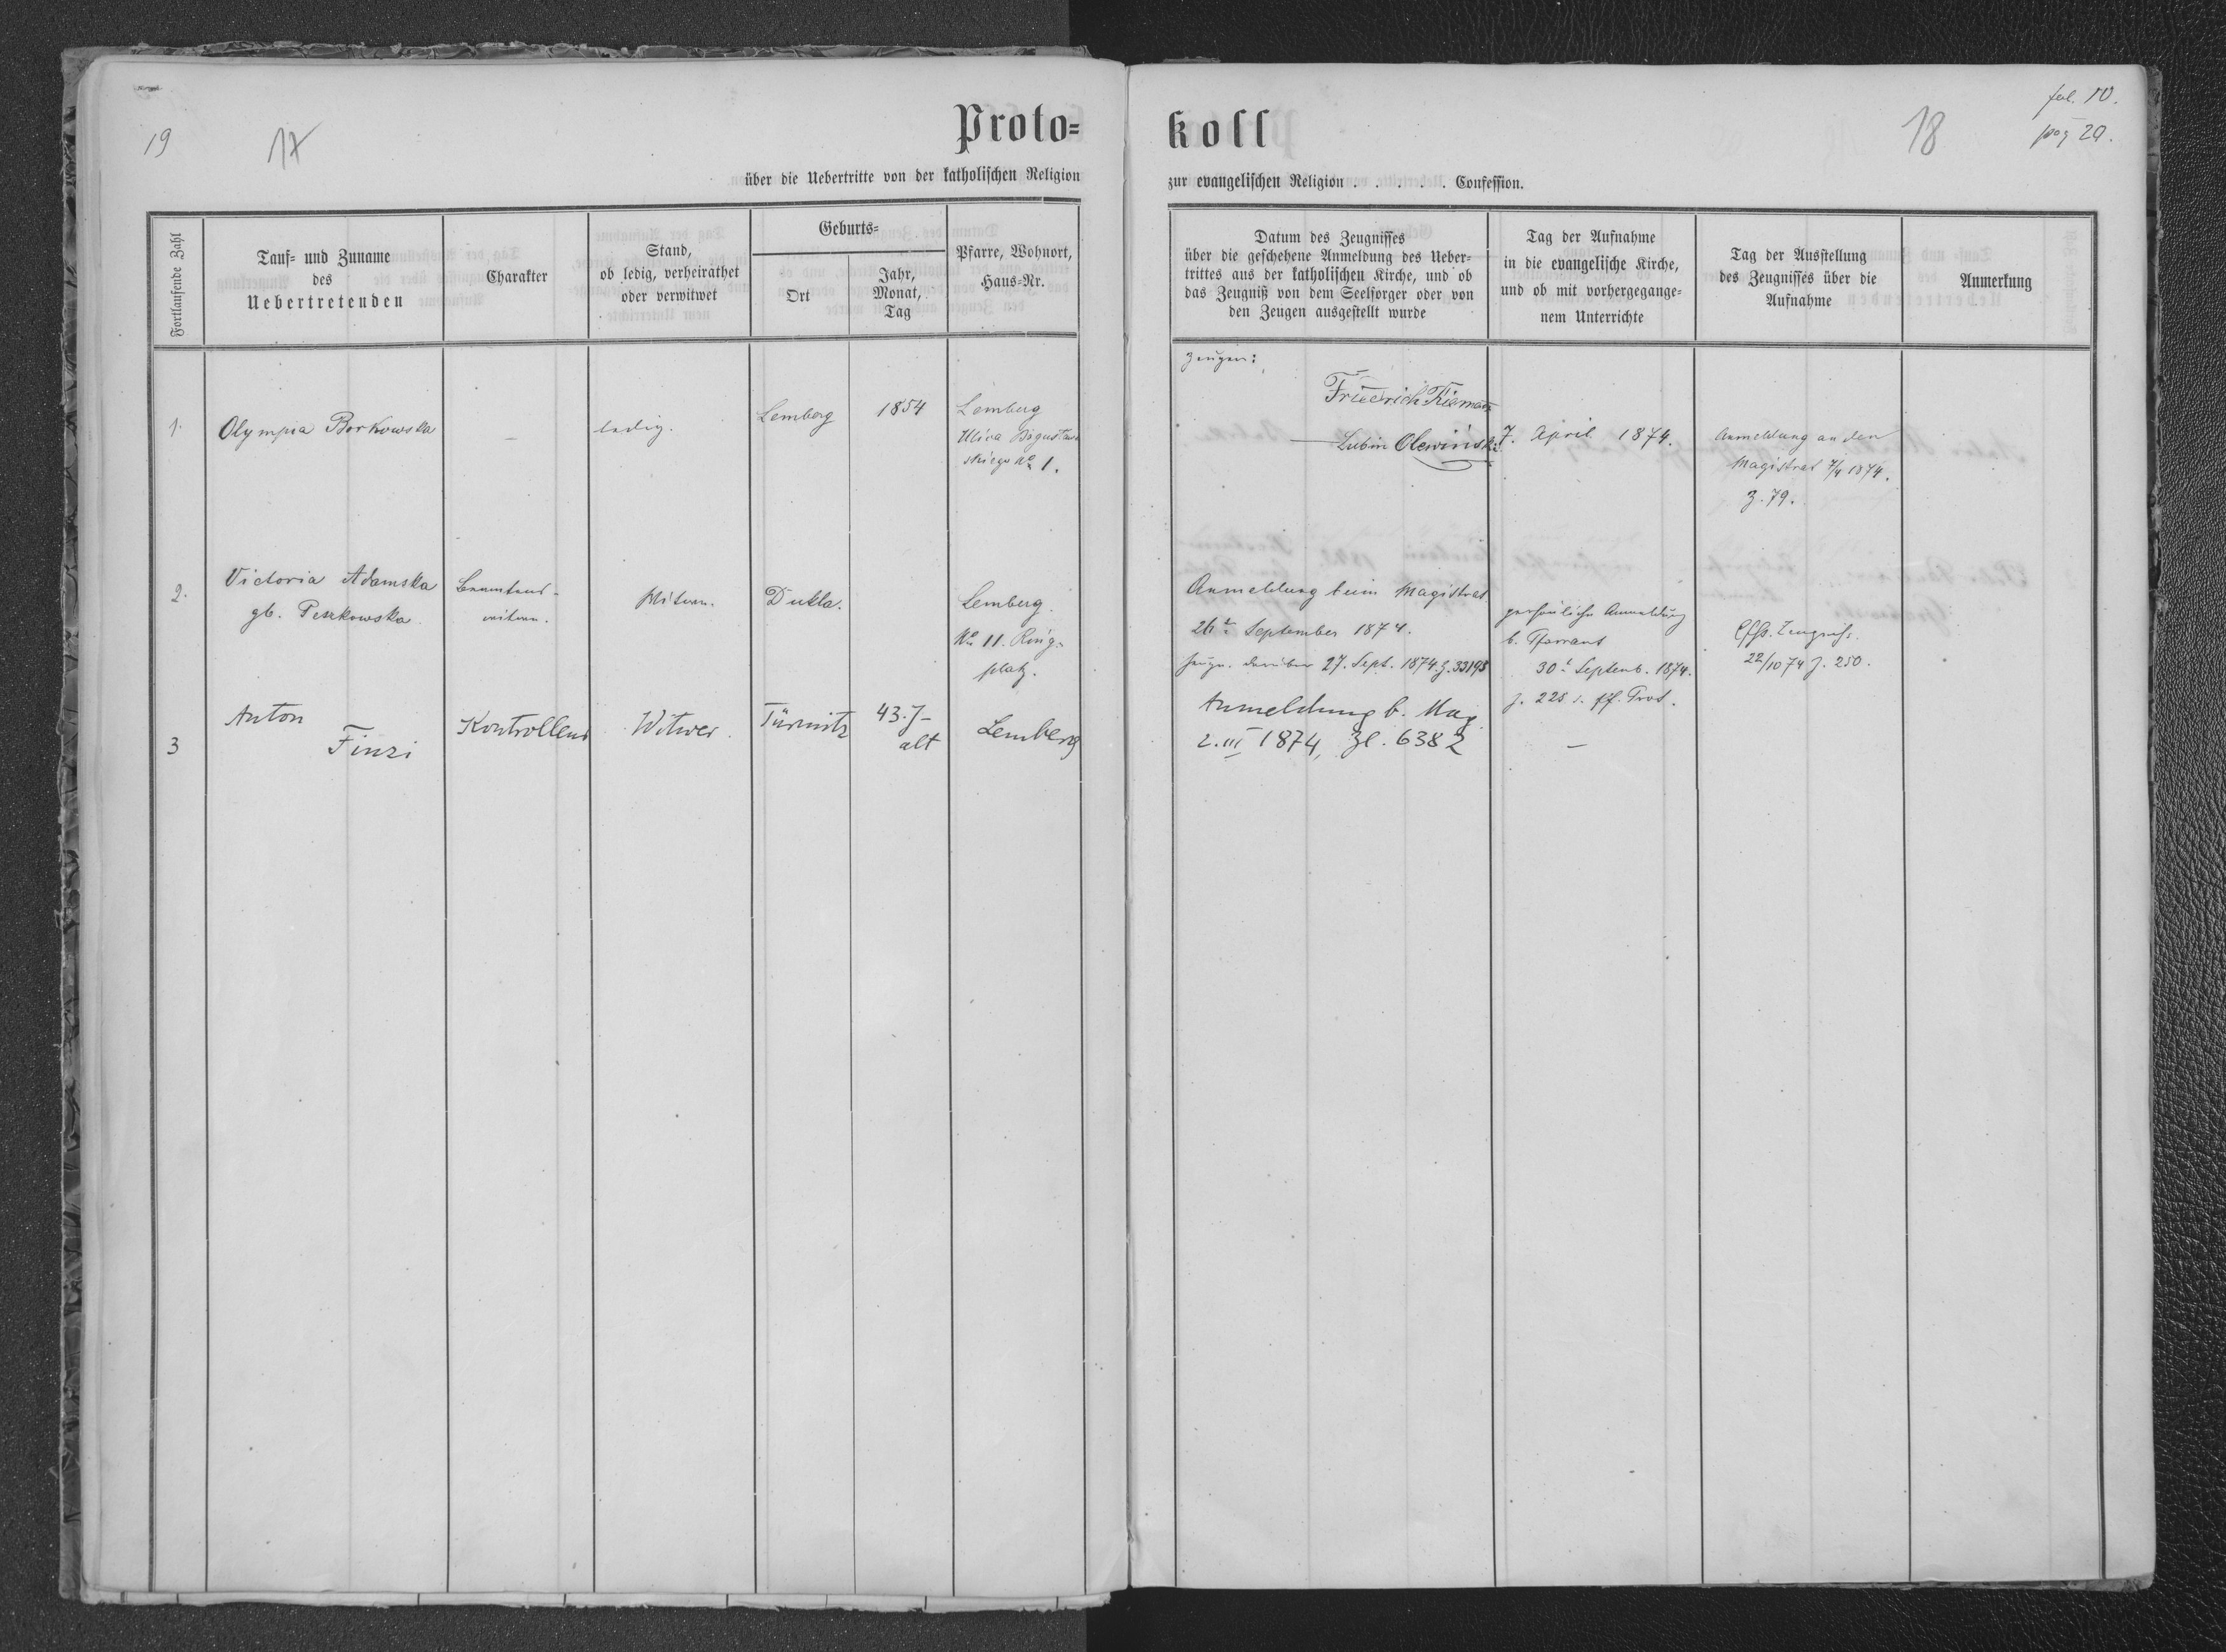 19
17
Proto-
über die Uebertritte von der katholischen Religion
Fortlaufende Zahl
Tauf- und Zuname
des
Uebertretenden
Charakter
Stand,
ob ledig, verheirathet
oder verwitwet
Geburts-
Ort
Jahr,
Monat,
Tag
Pfarre, Wohnort,
Haus-Nr.
1.
Olympia Borkowska
–
ledig.
Lemberg
1854
Lemberg
Ulica Bogusław
skiego No 1.
2.
Victoria Adamska
gb. Peszkowska
Beamtens-
witwe.
Witwe.
Dukla.
Lemberg.
No 11. Ring-
platz.
3
Anton
Finzi
Kontrollend
Witwer.
Türmitz
43. J–
alt
Lemberg
koll
18
fol. 10.
pag 20.
zur evangelischen Religion . . . . . Confession.
Datum des Zeugnisses
über die geschehene Anmeldung des Ueber-
trittes aus der katholischen Kirche, und ob
das Zeugniß von dem Seelsorger oder von
den Zeugen ausgestellt wurde
Tag der Aufnahme
in die evangelische Kirche,
und ob mit vorhergegange-
nem Unterrichte
Tag der Ausstellung
des Zeugnisses über die
Aufnahme
Anmerkung
Zeugen:
Friedrich
Lubin Olewiński
7. April 1874.
Anmeldung an den
Magistrat 7/4 1874.
Z. 79.
Anmeldung beim Magistrat
26t September 1874.
27. Sept. 1874. Z. 33193
persönliche Anmeldung
b. Pfarramt
30t Septemb. 1874.
Z. 228 s. Prot.
Zeugniß.
22/10 74 Z. 250.
Anmeldung b. Mag.
2. III 1874, Zl. 6382
–